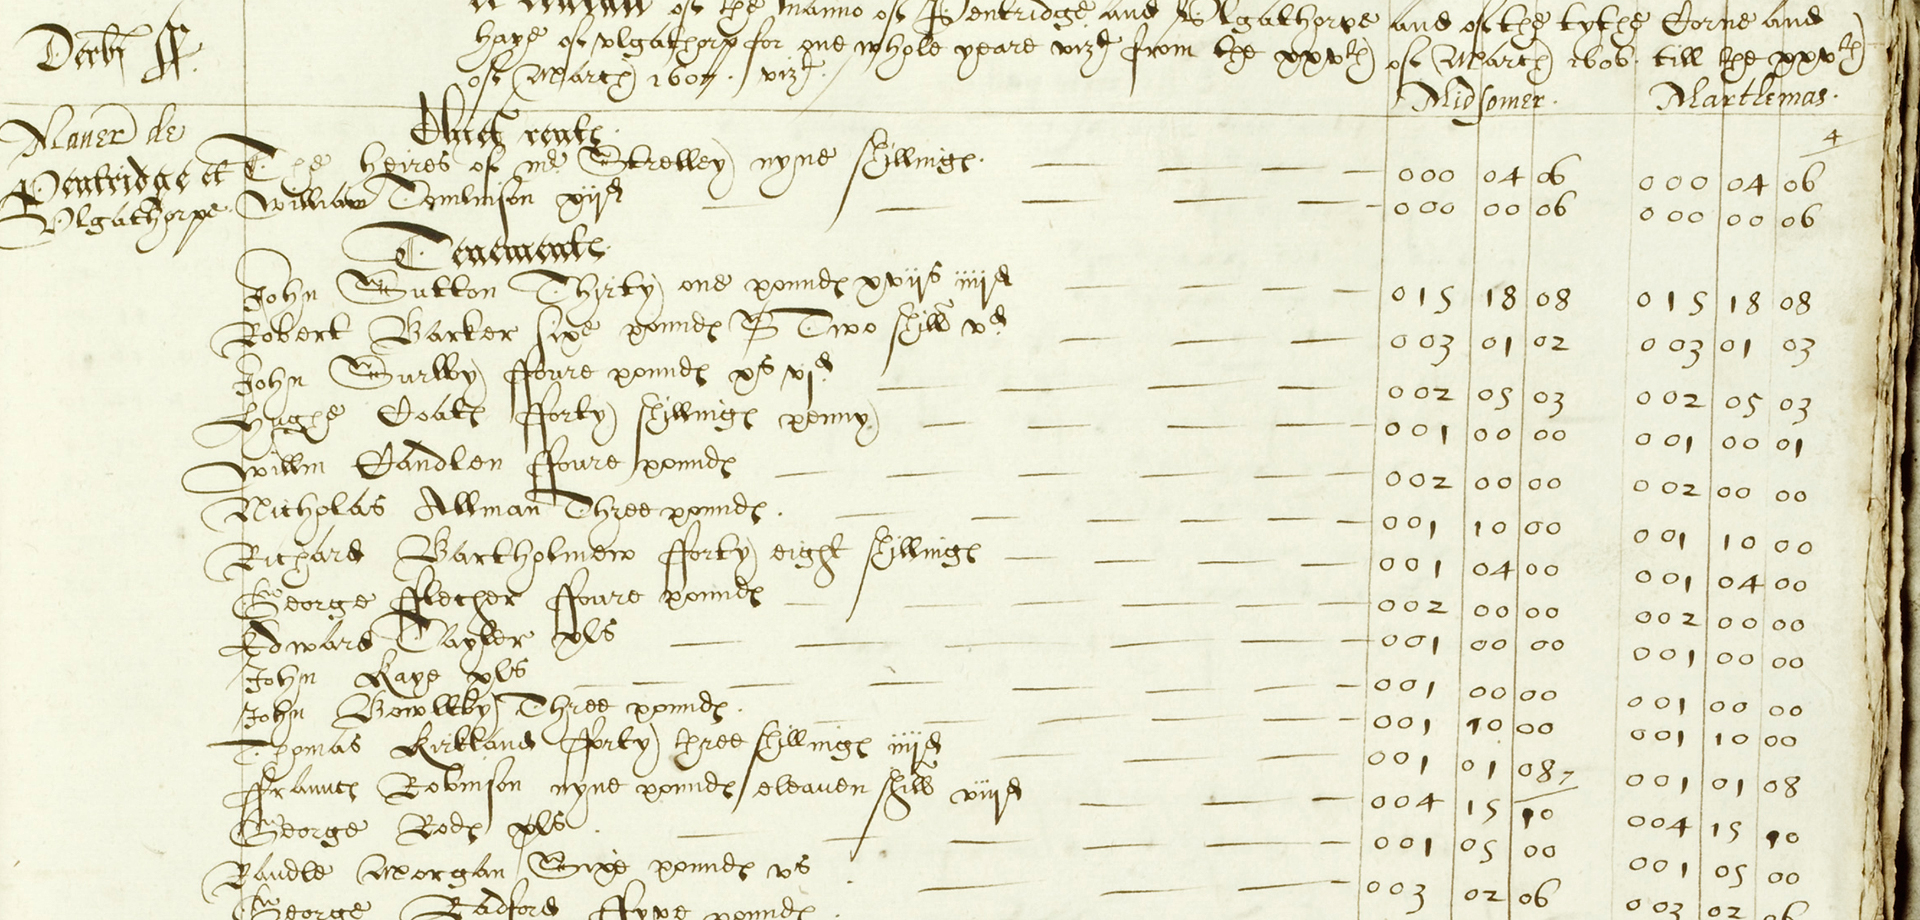 Derb ss.
A Rentall of the Manno of Pentridge and Ulgathorpe and of the tythe Corne and
haye of Ulgathorp for one whole yeare vizt from the xxvth of March 1606 till the xxvth
of March 1607. vizt.
Midsomer. Martlemas.
4
Maner de Pentridge et Ulgathorpe.
Quiet rents.
The heires of mr Strelley nyne shillings. 000 04 06 000 04 06
William Tomlinson xijd 000 00 06 000 00 06
Tenements.
John Sutton Thirty one pounds xvijs iiijd 015 18 08 015 18 08
Robert Barker sixe pounds Two shill vd 003 01 02 003 01 03
John Burlby ffoure pounds xs vjd 002 05 03 002 05 03
Hughe Coats fforty shillings penny 001 00 00 001 00 01
Willm Candlen ffoure pounds 002 00 00 002 00 00
Nicholas Allman Three pounds. 001 10 00 001 10 00
Richard Bartholmew fforty eight shillings 001 04 00 001 04 00
George ffletcher ffoure pounds 002 00 00 002 00 00
Edward Tayler xls 001 00 00 001 00 00
John Kaye xls 001 00 00 001 00 00
John Bowlkby Three pounds. 001 10 00 001 10 00
Thomas Kirkland fforty three shillings iiijd 001 01 08 001 01 08
ffraunces Robinson nyne pounds eleaven shill viijd 004 15 10 004 15 10
George Rods ls. 001 05 00 001 05 00
Randle Morgan Sixe pounds vs 003 02 06 003 02 06
George Radford ffyve pounds.